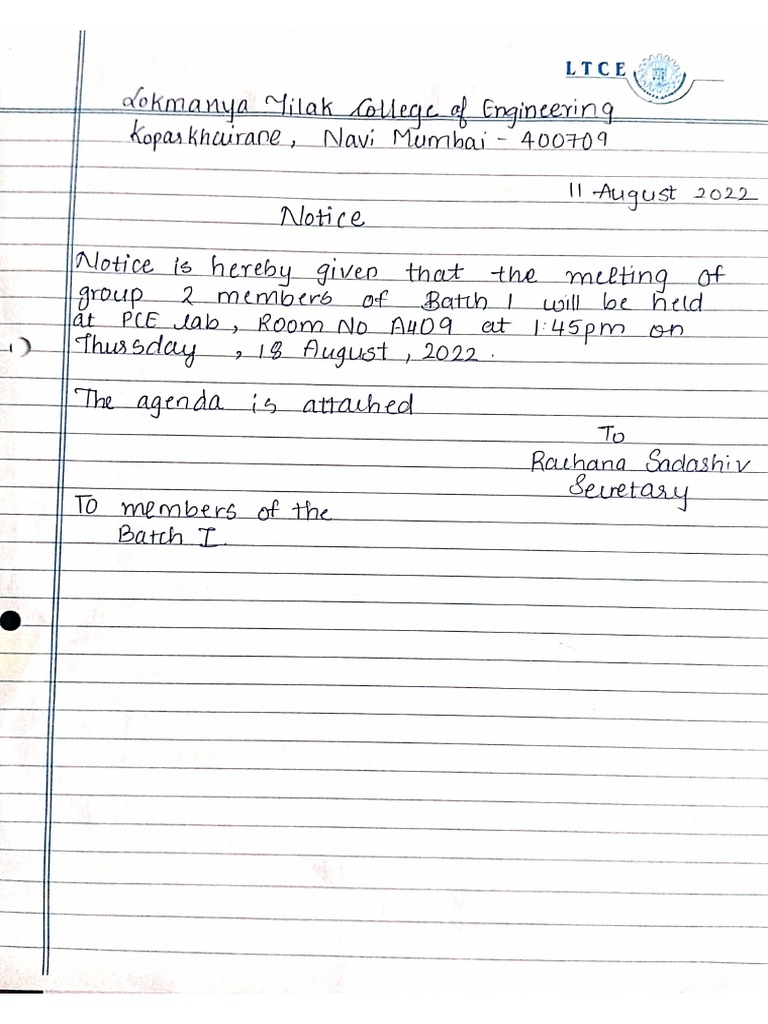 LTCE
Lokmanya Tilak College of Engineering
Koparkhairane, Navi Mumbai - 400709
11 August 2022
Notice
Notice is hereby given that the meeting of
group 2 members of Batch 1 will be held
at PCE lab, Room No A409 at 1:45pm on
1) Thursday, 18 August, 2022.
The agenda is attached
To
Rachana Sadashiv
Secretary
To members of the
Batch I